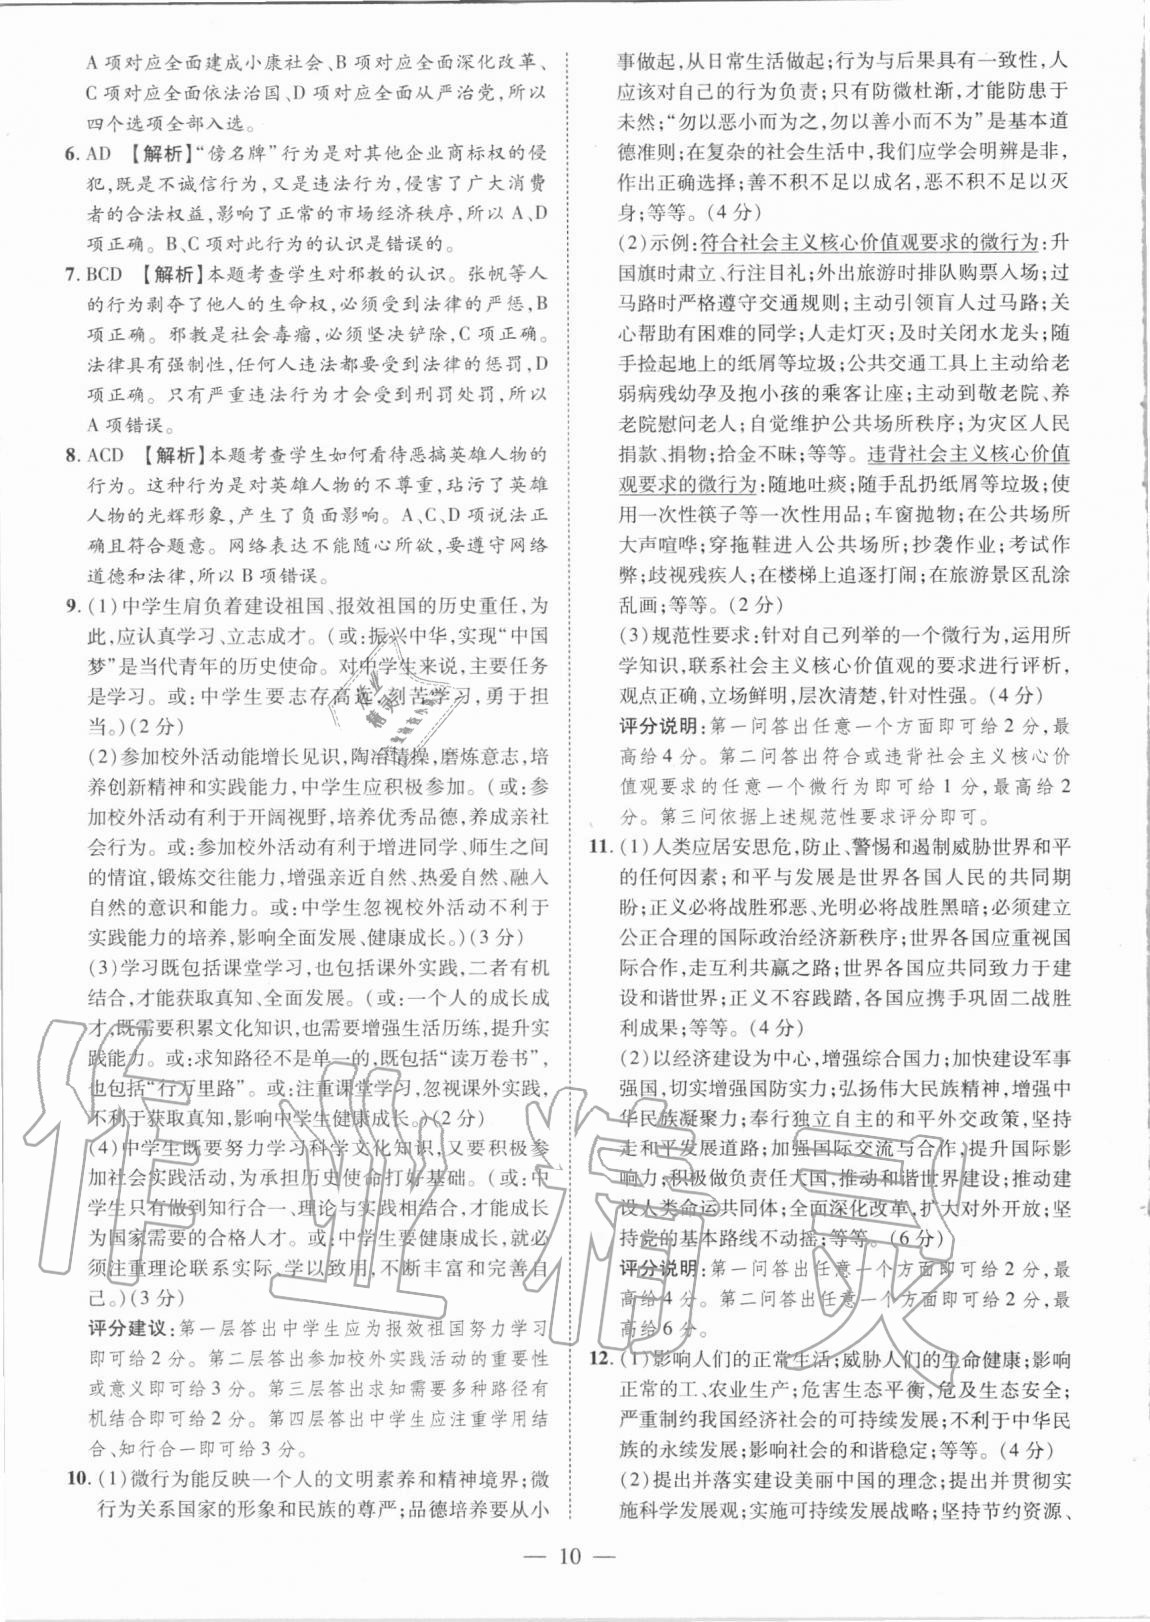 A 项对应全面建成小康社会、B 项对应全面深化改革、
C 项对应全面依法治国、D 项对应全面从严治党,所以
四个选项全部入选。
6. AD 【解析】“傍名牌”行为是对其他企业商标权的侵
犯,既是不诚信行为,又是违法行为,侵害了广大消费
者的合法权益,影响了正常的市场经济秩序,所以 A、D
项正确。B、C 项对此行为的认识是错误的。
7. BCD 【解析】本题考查学生对邪教的认识。张帆等人
的行为剥夺了他人的生命权,必须受到法律的严惩,B
项正确。邪教是社会毒瘤,必须坚决铲除,C 项正确。
法律具有强制性,任何人违法都要受到法律的惩罚,D
项正确。只有严重违法行为才会受到刑罚处罚,所以
A 项错误。
8. ACD 【解析】本题考查学生如何看待恶搞英雄人物的
行为。这种行为是对英雄人物的不尊重,玷污了英雄
人物的光辉形象,产生了负面影响。A、C、D 项说法正
确且符合题意。网络表达不能随心所欲,要遵守网络
道德和法律,所以 B 项错误。
9. (1)中学生肩负着建设祖国、报效祖国的历史重任,为
此,应认真学习、立志成才。(或:振兴中华,实现“中国
梦”是当代青年的历史使命。对中学生来说,主要任务
是学习。或:中学生要志存高远,刻苦学习,勇于担
当。)(2 分)
(2)参加校外活动能增长见识,陶冶情操,磨炼意志,培
养创新精神和实践能力,中学生应积极参加。(或:参
加校外活动有利于开阔视野,培养优秀品德,养成亲社
会行为。或:参加校外活动有利于增进同学、师生之间
的情谊,锻炼交往能力,增强亲近自然、热爱自然、融入
自然的意识和能力。或:中学生忽视校外活动不利于
实践能力的培养,影响全面发展、健康成长。)(3 分)
(3)学习既包括课堂学习,也包括课外实践,二者有机
结合,才能获取真知、全面发展。(或:一个人的成长成
才,既需要积累文化知识,也需要增强生活历练,提升实
践能力。或:求知路径不是单一的,既包括“读万卷书”,
也包括“行万里路”。或:注重课堂学习,忽视课外实践,
不利于获取真知,影响中学生健康成长。)(2 分)
(4)中学生既要努力学习科学文化知识,又要积极参
加社会实践活动,为承担历史使命打好基础。(或:中
学生只有做到知行合一、理论与实践相结合,才能成长
为国家需要的合格人才。或:中学生要健康成长,就必
须注重理论联系实际,学以致用,不断丰富和完善自
己。)(3 分)
评分建议:第一层答出中学生应为报效祖国努力学习
即可给 2 分。第二层答出参加校外实践活动的重要性
或意义即可给 3 分。第三层答出求知需要多种路径有
机结合即可给 2 分。第四层答出中学生应注重学用结
合、知行合一即可给 3 分。
10. (1)微行为能反映一个人的文明素养和精神境界;微
行为关系国家的形象和民族的尊严;品德培养要从小
事做起,从日常生活做起;行为与后果具有一致性,人
应该对自己的行为负责;只有防微杜渐,才能防患于
未然;“勿以恶小而为之,勿以善小而不为”是基本道
德准则;在复杂的社会生活中,我们应学会明辨是非,
作出正确选择;善不积不足以成名,恶不积不足以灭
身;等等。(4 分)
(2)示例:符合社会主义核心价值观要求的微行为:升
国旗时肃立、行注目礼;外出旅游时排队购票入场;过
马路时严格遵守交通规则;主动引领盲人过马路;关
心帮助有困难的同学;人走灯灭;及时关闭水龙头;随
手捡起地上的纸屑等垃圾;公共交通工具上主动给老
弱病残幼孕及抱小孩的乘客让座;主动到敬老院、养
老院慰问老人;自觉维护公共场所秩序;为灾区人民
捐款、捐物;拾金不昧;等等。违背社会主义核心价值
观要求的微行为:随地吐痰;随手乱扔纸屑等垃圾;使
用一次性筷子等一次性用品;车窗抛物;在公共场所
大声喧哗;穿拖鞋进入公共场所;抄袭作业;考试作
弊;歧视残疾人;在楼梯上追逐打闹;在旅游景区乱涂
乱画;等等。(2 分)
(3)规范性要求:针对自己列举的一个微行为,运用所
学知识,联系社会主义核心价值观的要求进行评析,
观点正确,立场鲜明,层次清楚,针对性强。(4 分)
评分说明:第一问答出任意一个方面即可给 2 分,最
高给 4 分。第二问答出符合或违背社会主义核心价
值观要求的任意一个微行为即可给 1 分,最高给 2
分。第三问依据上述规范性要求评分即可。
11. (1)人类应居安思危,防止、警惕和遏制威胁世界和平
的任何因素;和平与发展是世界各国人民的共同期
盼;正义必将战胜邪恶、光明必将战胜黑暗;必须建立
公正合理的国际政治经济新秩序;世界各国应重视国
际合作,走互利共赢之路;世界各国应共同致力于建
设和谐世界;正义不容践踏,各国应携手巩固二战胜
利成果;等等。(4 分)
(2)以经济建设为中心,增强综合国力;加快建设军事
强国,切实增强国防实力;弘扬伟大民族精神,增强中
华民族凝聚力;奉行独立自主的和平外交政策,坚持
走和平发展道路;加强国际交流与合作,提升国际影
响力;积极做负责任大国,推动和谐世界建设;推动建
设人类命运共同体;全面深化改革,扩大对外开放;坚
持党的基本路线不动摇;等等。(6 分)
评分说明:第一问答出任意一个方面即可给 2 分,最
高给 4 分。第二问答出任意一个方面即可给 2 分,最
高给 6 分。
12. (1)影响人们的正常生活;威胁人们的生命健康;影响
正常的工、农业生产;危害生态平衡,危及生态安全;
严重制约我国经济社会的可持续发展;不利于中华民
族的永续发展;影响社会的和谐稳定;等等。(4 分)
(2)提出并落实建设美丽中国的理念;提出并贯彻实
施科学发展观;实施可持续发展战略;坚持节约资源、
— 10 —
作业精灵